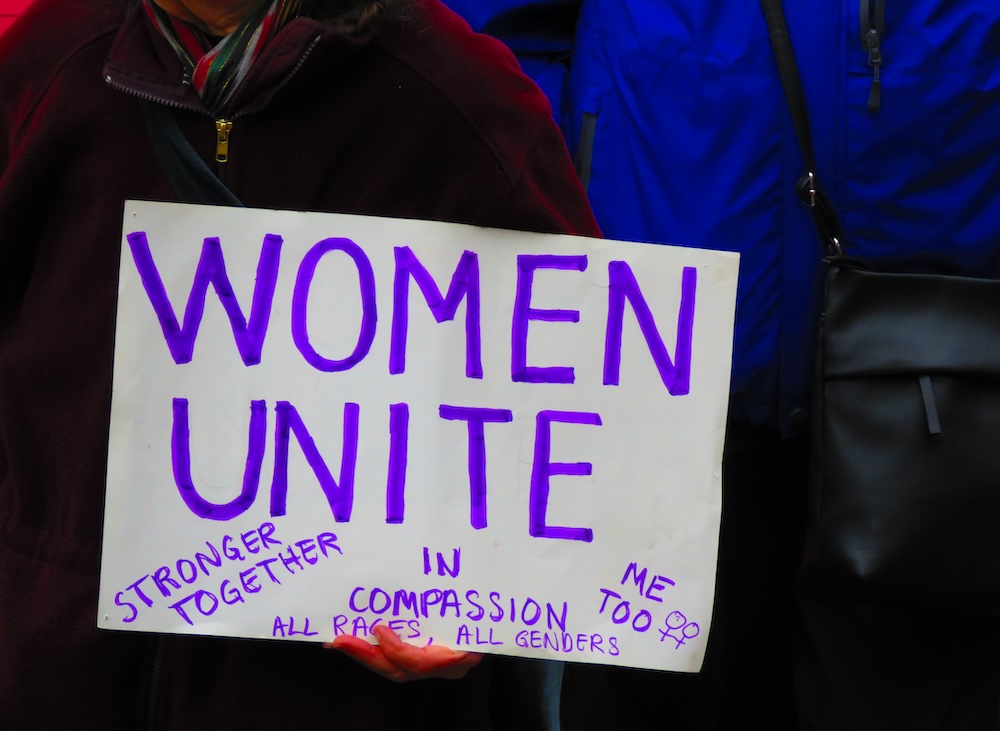 WOMEN
UNITE
STRONGER
TOGETHER
IN
COMPASSION
ALL RACES, ALL GENDERS
ME
TOO